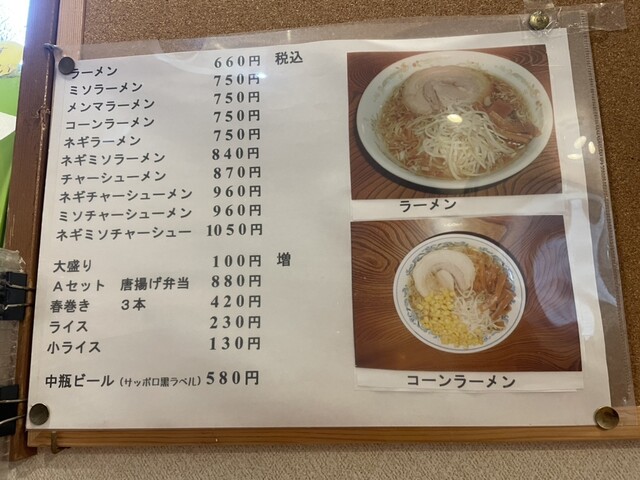 ラーメン 660円 税込
ミソラーメン 750円
メンマラーメン 750円
コーンラーメン 750円
ネギラーメン 750円
ネギミソラーメン 840円
チャーシューメン 870円
ネギチャーシューメン 960円
ミソチャーシューメン 960円
ネギミソチャーシュー 1050円
大盛り 100円 増
Aセット 唐揚げ弁当 880円
春巻き 3本 420円
ライス 230円
小ライス 130円
中瓶ビール（サッポロ黒ラベル） 580円
ラーメン
コーンラーメン